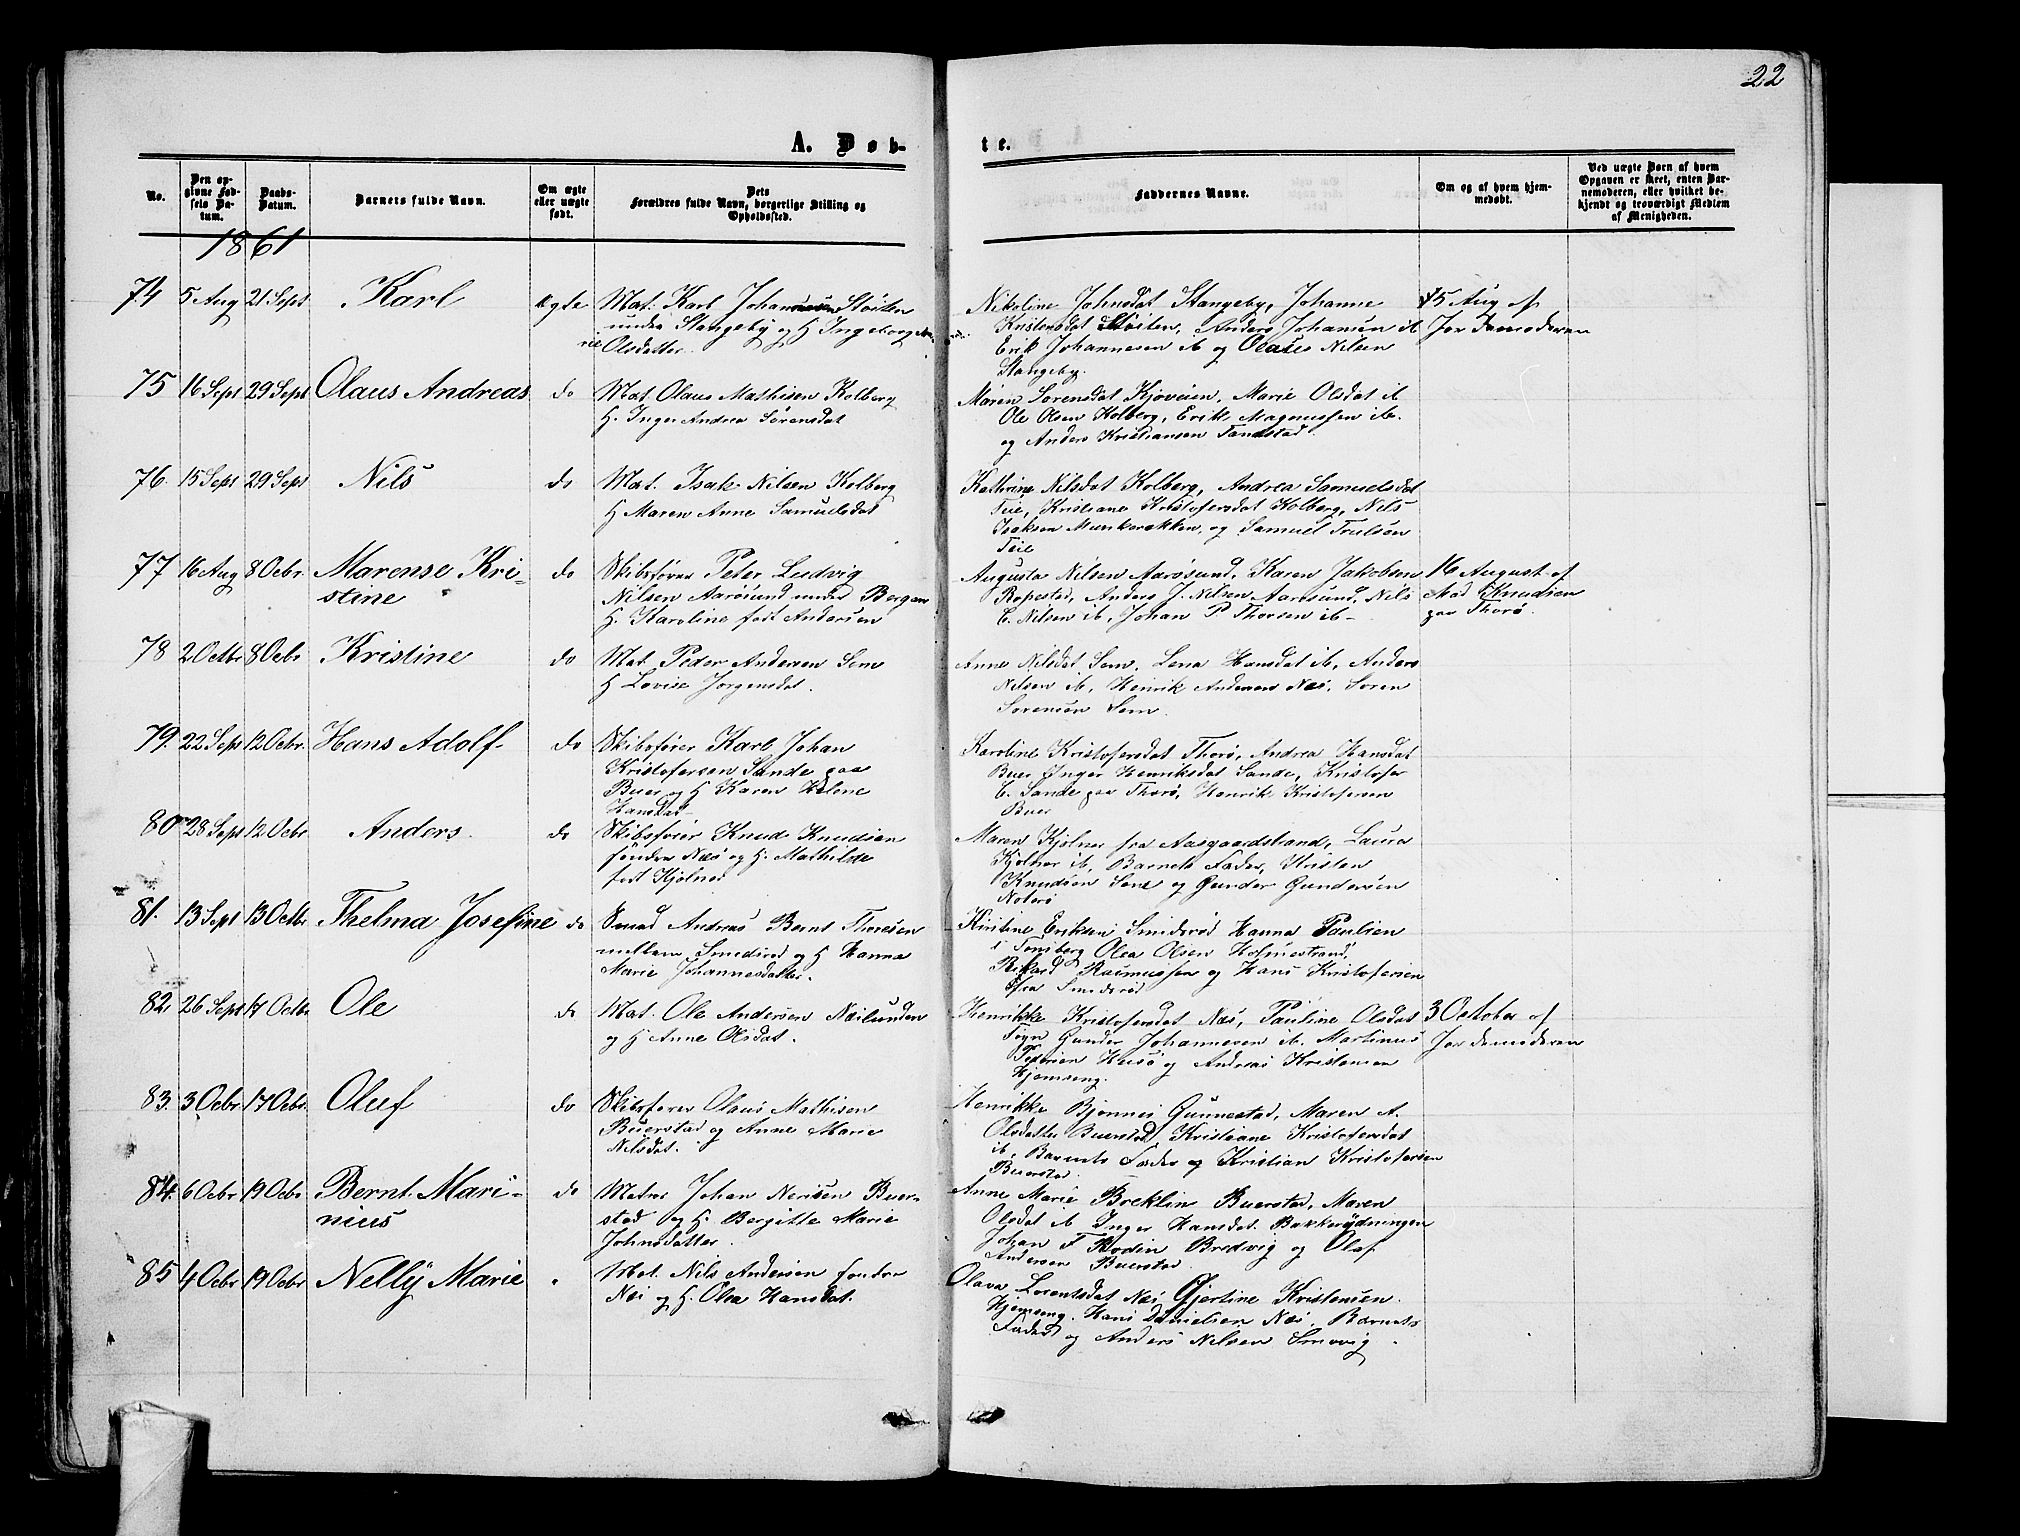 22
A. Døb-
te.
No.
Den op-
givne Fød-
sels Da-
tum.
Daabs-
Datum.
Barnets fulde Navn.
Om ægte
eller uægte
født.
Dets
Forældres fulde Navn, borgerlige Stilling og
Opholdssted.
Faddernes Navne.
Om og af hvem hjem-
medøbt.
Ved uægte Børn af hvem
Opgaven er skeet, enten Bar-
nemoderen, eller hvilket be-
kjendt og troværdigt Medlem
af Menigheden.
1861
74 5 Aug 21 Sept Karl ægte
Mat. Karl Johansen Stöiten
under Stangeby og H Ingeborg
Olsdatter
Nikoline Johnsdat Stangeby, Johanne
Kristensdat Stöiten, Anders Johansen ib
Erik Johannesen ib og Olaus Nilsen
Stangeby.
15 Aug af
Jordemoderen
75 16 Sept 29 Sept Olaus Andreas do
Mat. Olaus Mathisen Kolberg
H. Inger Andrea Sörensdat
Maren Sorensdat Kjöveien, Marie Olsdat ib
Ole Olsen Kolberg, Erik Magnussen ib.
og Anders Kristiansen Tandstad.
76. 15 Sept 29 Sept Nils do
Mat. Isak Nilsen Kolberg
H Maren Anne Samuelsdat
Kathrine Nilsdat Kolberg, Andrea Samuelsdat
Teie, Kristiane Kristofersdat Kolberg, Nils
Isaksen Munkerekken, og Samuel Trulsön
Teie
77 16 Aug 8 Octbr. Marense Kri-
stine do
Skibsförer Peter Ludvig
Nilsen Aarösund under Bergan
H. Karoline födt Andersen
Augusta Nilsen Aarösund, Karen Jakobsen
Ropestad, Anders J. Nilsen Aarosund, Nils
C. Nilsen ib, Johan P Thorsen ib-
16 August af
Mad Knudsen
paa Thorö.
78 2 Octbr 8 Octbr Kristine do
Mat Peder Andersen Sem
H Lovise Jorgensdat.
Anne Nilsdat Sem, Lena Hansdat ib, Anders
Nilsen ib, Henrik Andersen Næs, Soren
Sorensön Sem.
79. 22 Sept 12 Octbr. Hans Adolf do
Skibsförer Karl Johan
Kristofersen Sande paa
Buer og H Karen Helene
Hansdat
Karoline Kristofersdat Thorö, Andrea Hansdat
Buer Inger Henriksdat Sande, Kristofer
C. Sande paa Thorö, Henrik Kristofersen
Buer
80 28 Sept 12 Octbr Anders. do
Skibsförer Knud Knudsen
söndre Næs og H. Mathilde
födt Kjölner
Maren Kjölner fra Aasgaardstrand, Laura
Kjölner ib, Barnets Fader, Kristen
Knudsön Sene og Gunder Gundersön
Noterö
81. 13 Sept 13 Octbr Thelma Josefine do
Smed Andreas Bernt Thoresen
mellem Smedsröd og H Hanna
Marie Johannesdatter.
Kirstine Eriksen Smidsröd Hanna Paulsen
i Tonsberg Olea Olsen Holmestrand,
Rikard Rasmussen og Hans Kristofersen
fra Smidsröd
82. 26 Sept 17 Octbr Ole do
Mat. Ole Andersön Næslunden
og H Anne Olsdat.
Henrikke Kristofersdat Næs, Pauline Olsdat
Fogn Gunder Johannesen ib. Martinus
Pedersen Husö og Andreas Kristensen
Hjemseng.
3 October af
Jordemoderen
83. 3 Octbr 17 Octbr. Oluf do
Skibsförer Olaus Mathisen
Buerstad og Anne Marie
Nilsdat.
Henrikke Bjonnes Gunnestad, Maren A.
Olsdatter Buerstad, Kristiane Kristofersdat
ib, Barnets Fader og Kristian Kristofersen
Buerstad
84. 6 Octbr 19 Octbr Bernt Mari-
nius do
Matros Johan Nerisen Buer-
stad og H. Bergitte Marie
Johnsdatter.
Anne Marie Breklin Buerstad, Maren
Olsdat ib Inger Hansdat. Bakkerydningen
Johan F Rodin Bredvig og Olaf
Andersen Buerstad.
85 4 Octbr 19 Octbr Nelly Marie
Mat. Nils Andersön söndre
Næs og H. Olea Hansdat.
Olava Lorentsdat Næs Gjertine Kristensen.
Hjemseng. Hans Danielsen Næs, Barnets
Fader og Anders Nilsen Smevig.